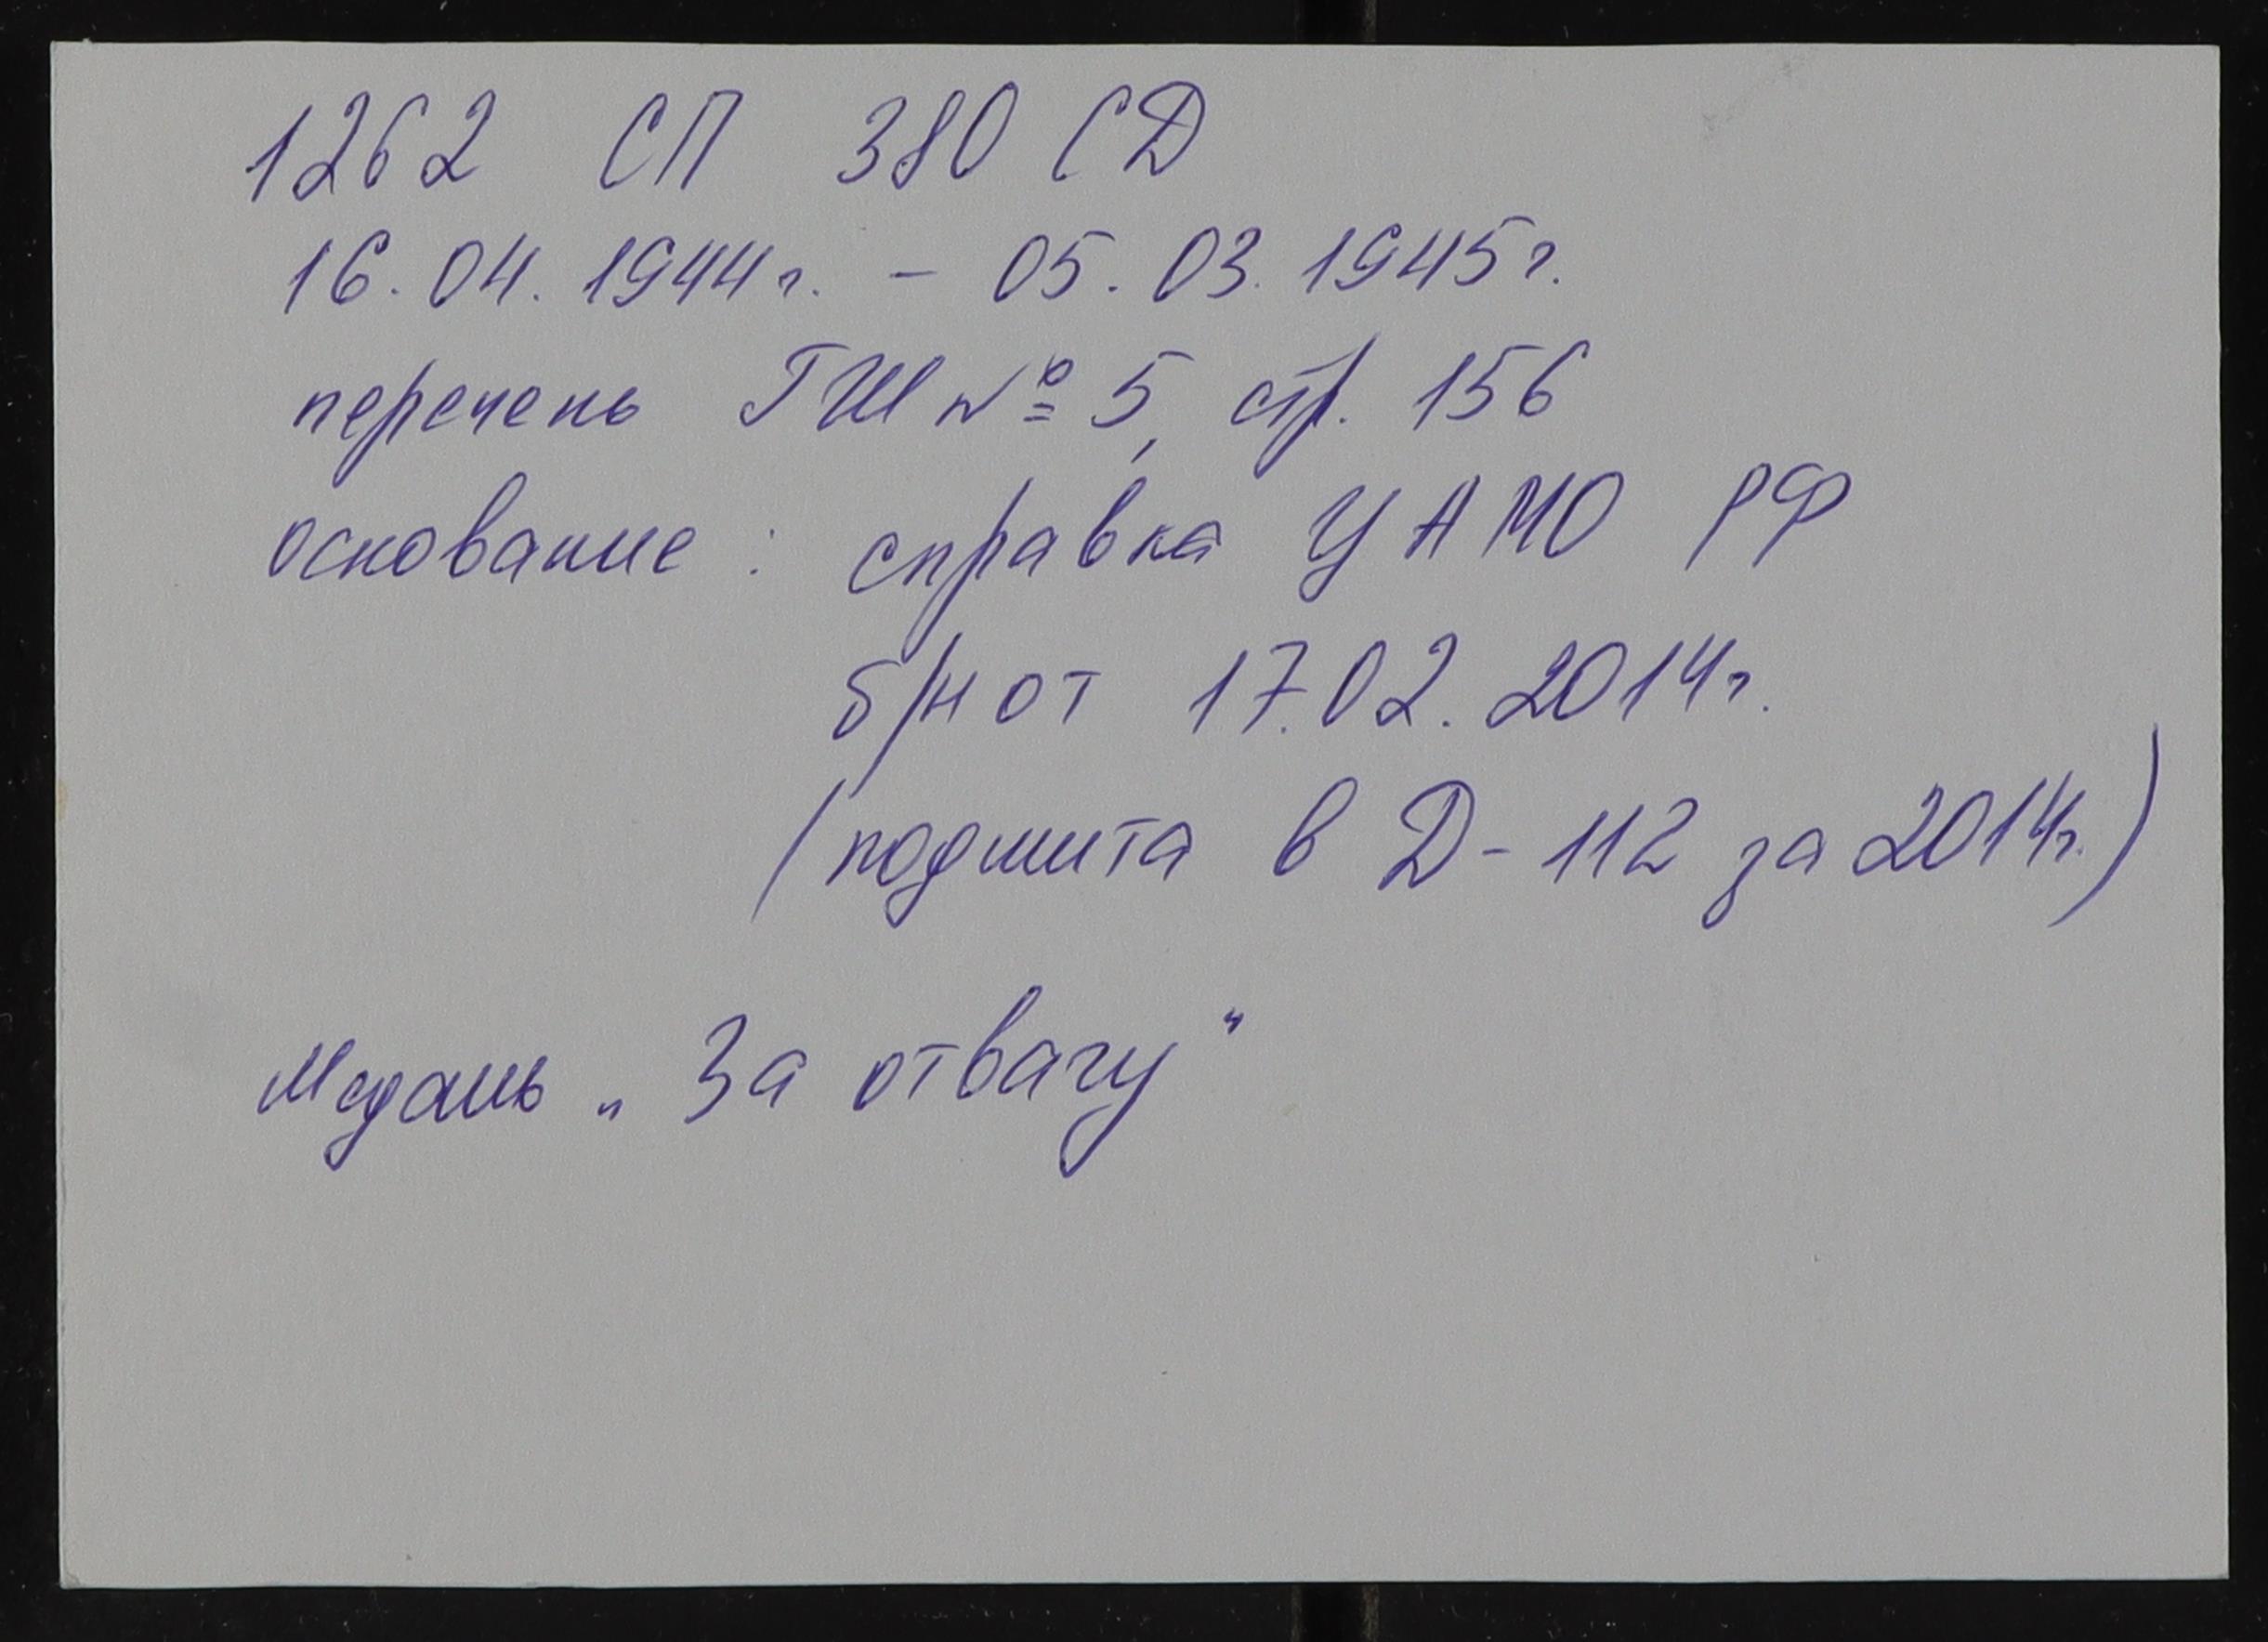 1262 СП 380 СД
16.04.1944г. – 05.03.1945г.
перечень ГШ № 5, стр. 156
основание: справка ЦАМО РФ
б/н от 17.02.2014г.
(подшита в Д-112 за 2014г.)
Медаль „За отвагу“